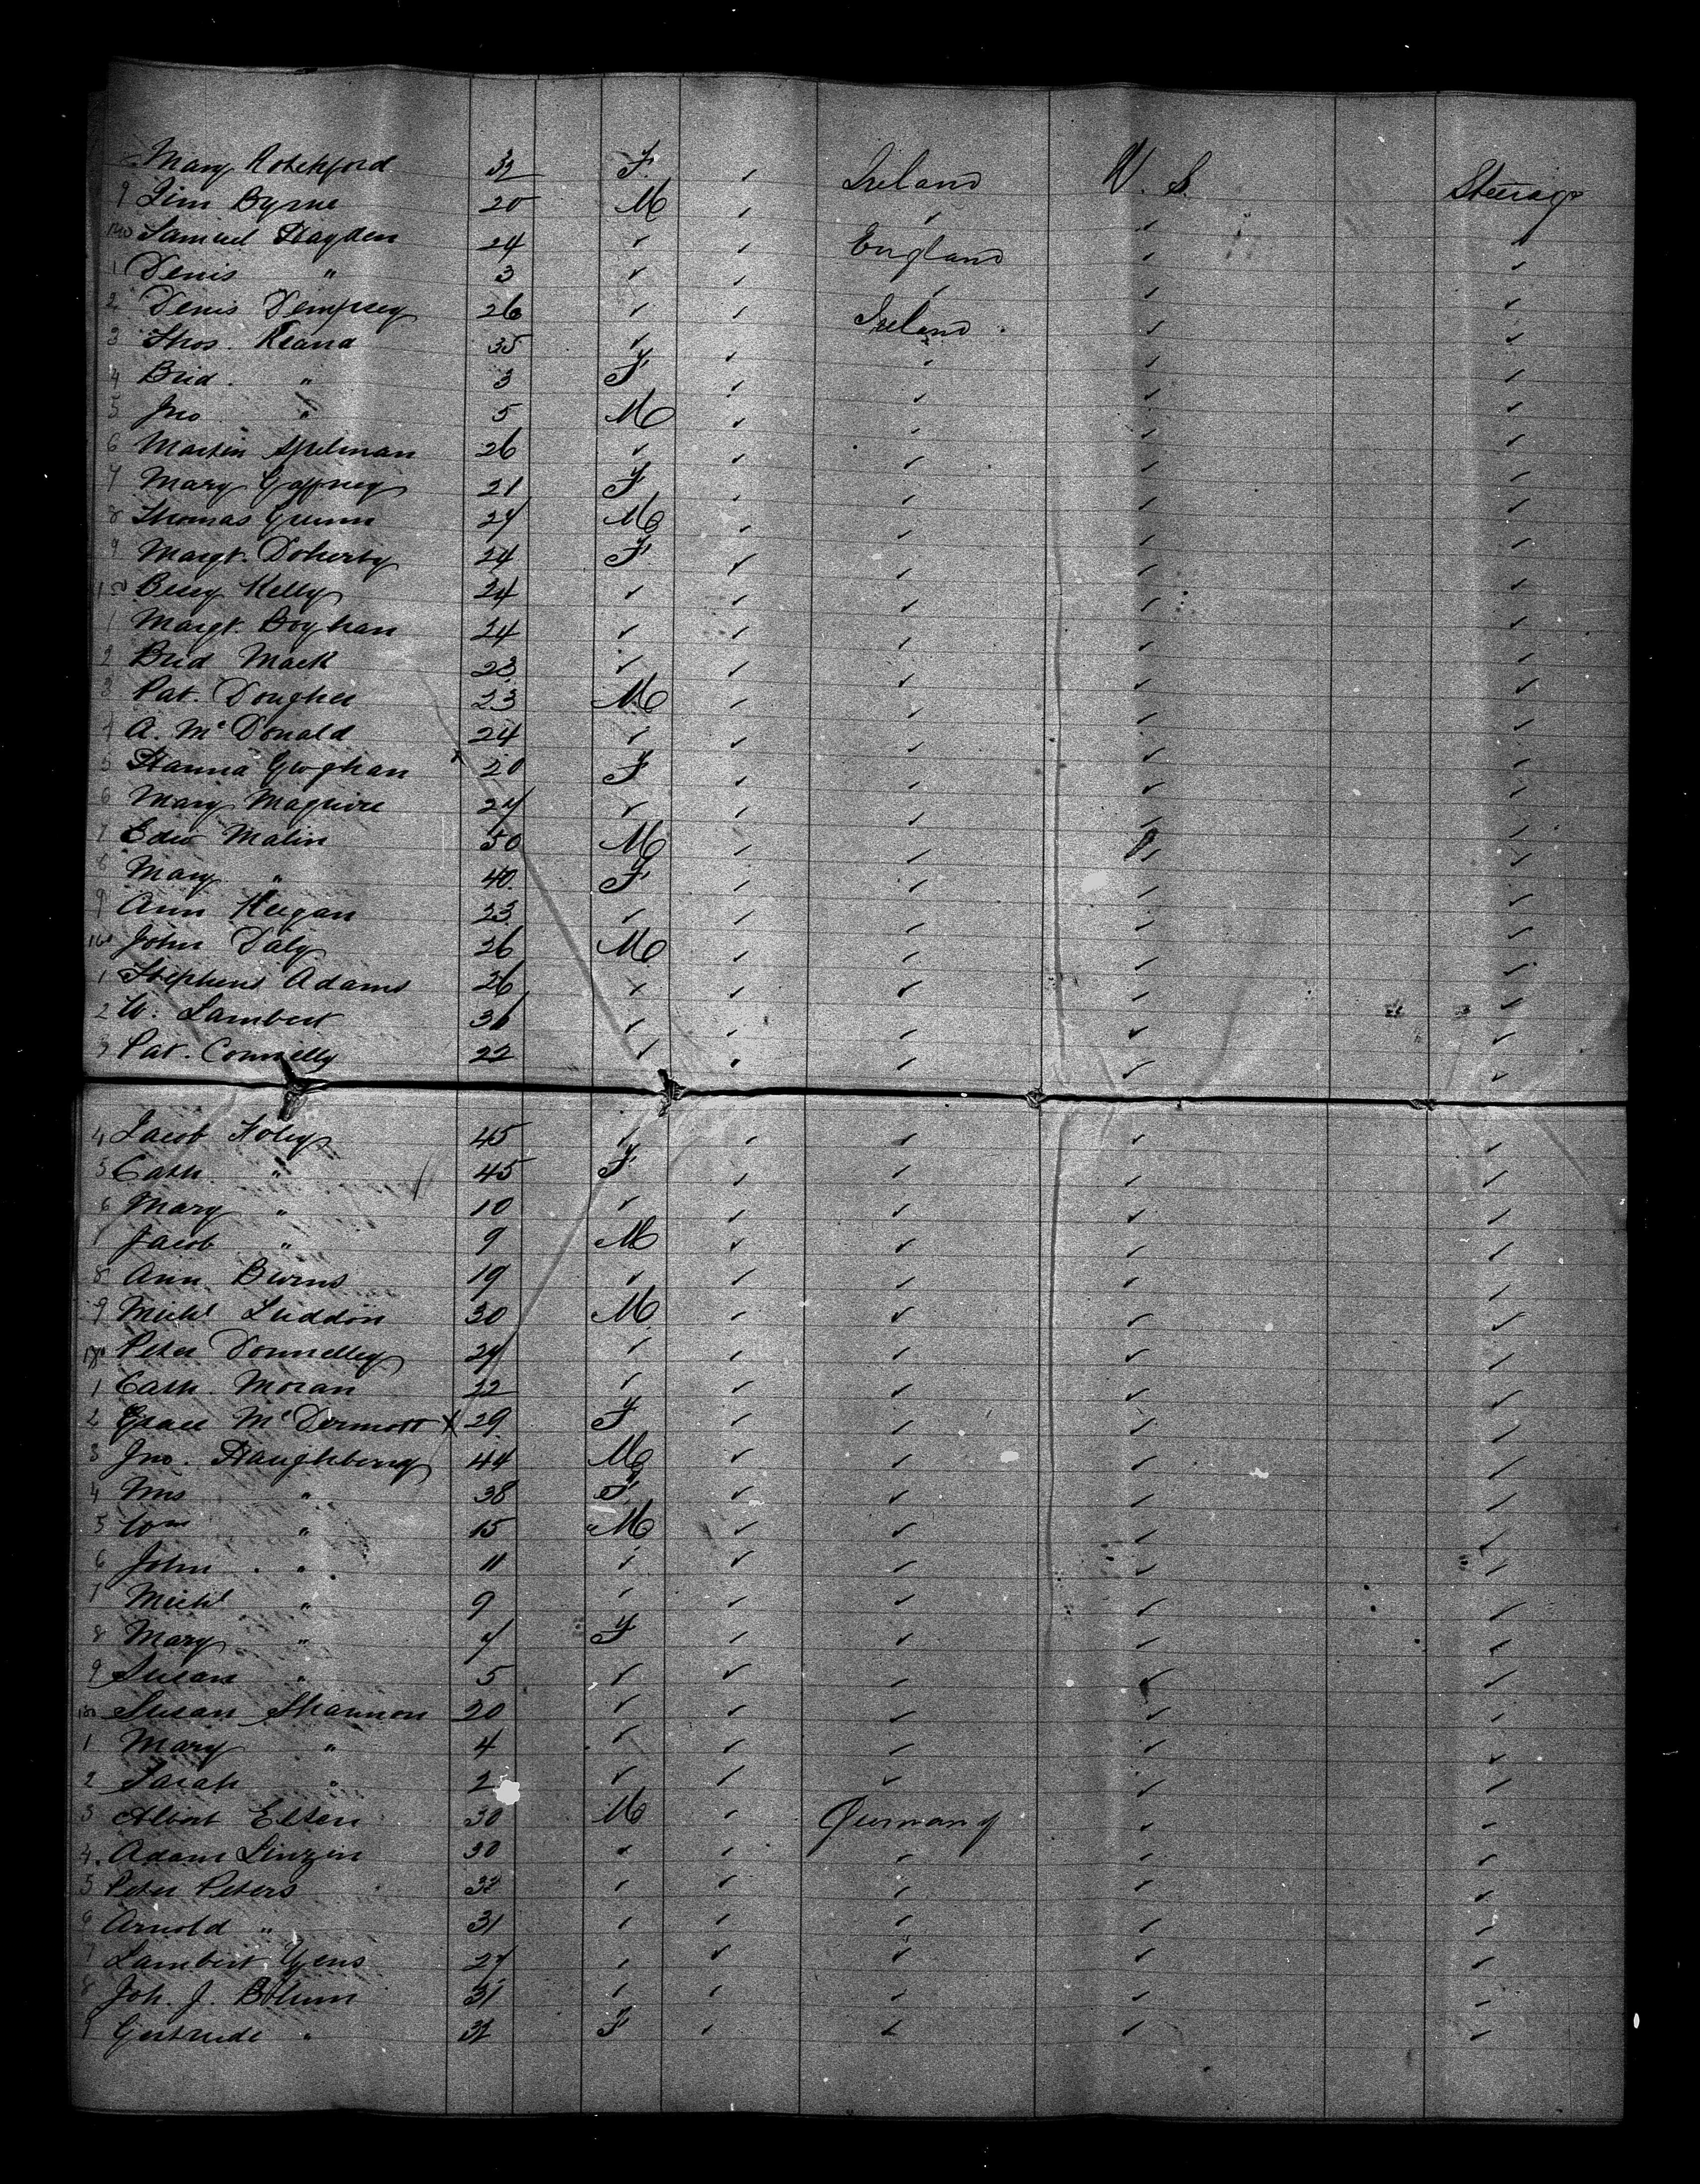 Mary Rotchford 32 F ✓ Ireland U. S. Steerage
9 Jim Byrne 20 M ✓ ✓ ✓ ✓
140 Samuel Hayden 24 ✓ ✓ England ✓ ✓
1 Denis " 3 ✓ ✓ ✓ ✓ ✓
2 Denis Dempsey 26 ✓ ✓ Ireland ✓ ✓
3 Thos. Keana 35 ✓ ✓ ✓ ✓ ✓
4 Brid. " 3 F ✓ ✓ ✓ ✓
5 Jno " 5 M ✓ ✓ ✓ ✓
6 Martin Spelman 26 ✓ ✓ ✓ ✓ ✓
7 Mary Gaffney 21 F ✓ ✓ ✓ ✓
8 Thomas Grunn 27 M ✓ ✓ ✓ ✓
9 Margt. Doherty 24 F ✓ ✓ ✓ ✓
150 Bessy Kelly 24 ✓ ✓ ✓ ✓ ✓
1 Margt. Boghan 24 ✓ ✓ ✓ ✓ ✓
2 Brid Mack 23 ✓ ✓ ✓ ✓ ✓
3 Pat. Dougher 23 M ✓ ✓ ✓ ✓
4 A. McDonald 24 ✓ ✓ ✓ ✓ ✓
5 Hanna Geoghan 20 F ✓ ✓ ✓ ✓
6 Mary Maguire 27 ✓ ✓ ✓ ✓ ✓
7 Edw Malin 50 M ✓ ✓ ✓ ✓
8 Mary " 40 F ✓ ✓ ✓ ✓
9 Ann Keegan 23 ✓ ✓ ✓ ✓ ✓
160 John Daly 26 M ✓ ✓ ✓ ✓
1 Stephens Adams 26 ✓ ✓ ✓ ✓ ✓
2 W. Lambert 36 ✓ ✓ ✓ ✓ ✓
3 Pat. Connelly 22 ✓ ✓ ✓ ✓ ✓
4 Jacob Foley 45 ✓ ✓ ✓ ✓ ✓
5 Cath. " 45 F ✓ ✓ ✓ ✓
6 Mary " 10 ✓ ✓ ✓ ✓ ✓
7 Jacob " 9 M ✓ ✓ ✓ ✓
8 Ann Burns 19 ✓ ✓ ✓ ✓ ✓
9 Michl Luddon 30 M ✓ ✓ ✓ ✓
170 Peter Donnelley 27 ✓ ✓ ✓ ✓ ✓
1 Cath. Moran 22 ✓ ✓ ✓ ✓ ✓
2 Grace McDermott X 29 F ✓ ✓ ✓ ✓
3 Jno. Haughberry 44 M ✓ ✓ ✓ ✓
4 Mrs " 38 F ✓ ✓ ✓ ✓
5 Wm " 15 M ✓ ✓ ✓ ✓
6 John " 11 ✓ ✓ ✓ ✓ ✓
7 Michl " 9 ✓ ✓ ✓ ✓ ✓
8 Mary " 7 F ✓ ✓ ✓ ✓
9 Susan " 5 ✓ ✓ ✓ ✓ ✓
180 Susan Shannon 20 ✓ ✓ ✓ ✓ ✓
1 Mary " 4 ✓ ✓ ✓ ✓ ✓
2 Sarah " 2 ✓ ✓ ✓ ✓ ✓
3 Albert Elsen 30 M ✓ Germany ✓ ✓
4. Adam Linzin 30 ✓ ✓ ✓ ✓ ✓
5 Peter Peters 32 ✓ ✓ ✓ ✓ ✓
6 Arnold " 31 ✓ ✓ ✓ ✓ ✓
7 Lambert Yens 27 ✓ ✓ ✓ ✓ ✓
8 Joh. J. Blum 31 ✓ ✓ ✓ ✓ ✓
9 Gertrude " 32 F ✓ ✓ ✓ ✓